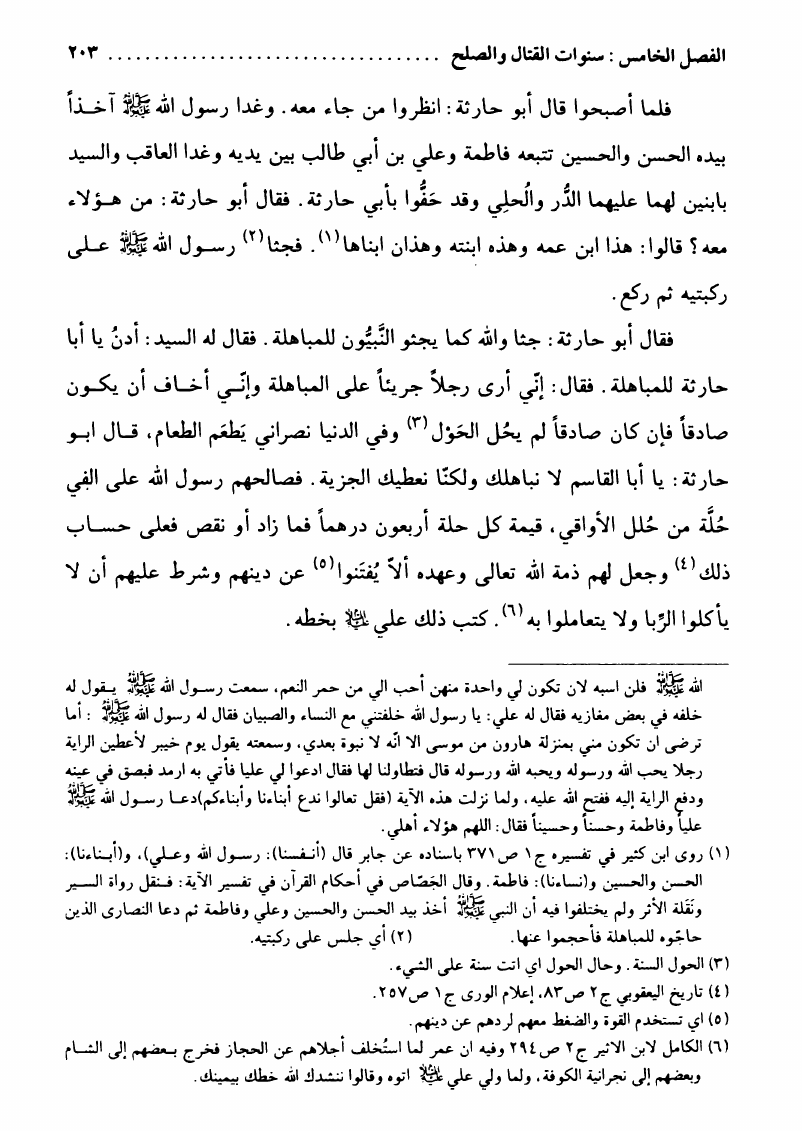 الفصل الخامس : سنوات القتال والصلح .................................... ٢٠٣
فلما أصبحوا قال أبو حارثة : انظروا من جاء معه . وغدا رسول الله ﷺ آخـذاً
بيده الحسن والحسين تتبعه فاطمة وعلي بن أبي طالب بين يديه وغدا العاقب والسيد
بابنين لهما عليهما الدُّر والُحلِي وقد حَفُّوا بأبي حارثة . فقال أبو حارثة : من هـؤلاء
معه ؟ قالوا : هذا ابن عمه وهذه ابنته وهذان ابناها(١) . فجثا(٢) رسـول الله ﷺ عـلى
ركبتيه ثم ركع .
فقال أبو حارثة : جثا والله كما يجثو النَّبيُّون للمباهلة . فقال له السيد : أدنُ يا أبا
حارثة للمباهلة . فقال : إنّي أرى رجلاً جريئاً على المباهلة وإنّـي أخـاف أن يكـون
صادقاً فإن كان صادقاً لم يحُل الحَوْل(٣) وفي الدنيا نصراني يَطعَم الطعام، قـال ابـو
حارثة : يا أبا القاسم لا نباهلك ولكنّا نعطيك الجزية . فصالحهم رسول الله على الفي
حُلَّة من حُلل الأواقي، قيمة كل حلة أربعون درهماً فما زاد أو نقص فعلى حسـاب
ذلك(٤) وجعل لهم ذمة الله تعالى وعهده ألاّ يُفتَنوا(٥) عن دينهم وشرط عليهم أن لا
يأكلوا الرِّبا ولا يتعاملوا به(٦) . كتب ذلك علي ؑ بخطه .
الله ﷺ فلن اسبه لان تكون لي واحدة منهن أحب الي من حمر النعم، سمعت رسـول الله ﷺ يـقول له
خلفه في بعض مغازيه فقال له علي: يا رسول الله خلفتني مع النساء والصبيان فقال له رسول الله ﷺ : أما
ترضى ان تكون مني بمنزلة هارون من موسى الا انّه لا نبوة بعدي، وسمعته يقول يوم خيبر لأعطين الراية
رجلا يحب الله ورسوله ويحبه الله ورسوله قال فتطاولنا لها فقال ادعوا لي عليا فأتي به ارمد فبصق في عينه
ودفع الراية إليه ففتح الله عليه، ولما نزلت هذه الآية (فقل تعالوا ندع أبناءنا وأبناءكم)دعـا رسـول الله ﷺ
علياً وفاطمة وحسناً وحسيناً فقال: اللهم هؤلاء أهلي.
(١) روى ابن كثير في تفسيره ج١ ص٣٧١ باسناده عن جابر قال (أنـفسنا): رسـول الله وعـلي)، و(أبـناءنا):
الحسن والحسين و(نساءنا): فاطمة. وقال الجَصّاص في أحكام القرآن في تفسير الآية: فـنقل رواة السـير
ونَقَلة الأثر ولم يختلفوا فيه أن النبي ﷺ أخذ بيد الحسن والحسين وعلي وفاطمة ثم دعا النصارى الذين
حاجّوه للمباهلة فأحجموا عنها. (٢) أي جلس على ركبتيه.
(٣) الحول السنة. وحال الحول اي اتت سنة على الشيء.
(٤) تاريخ اليعقوبي ج٢ ص٨٣، إعلام الورى ج١ ص٢٥٧.
(٥) اي تستخدم القوة والضغط معهم لردهم عن دينهم.
(٦) الكامل لابن الاثير ج٢ ص٢٩٤ وفيه ان عمر لما استُخلف أجلاهم عن الحجاز فخرج بـعضهم إلى الشـام
وبعضهم إلى نجرانية الكوفة، ولما ولي علي ؑ اتوه وقالوا ننشدك الله خطك بيمينك.